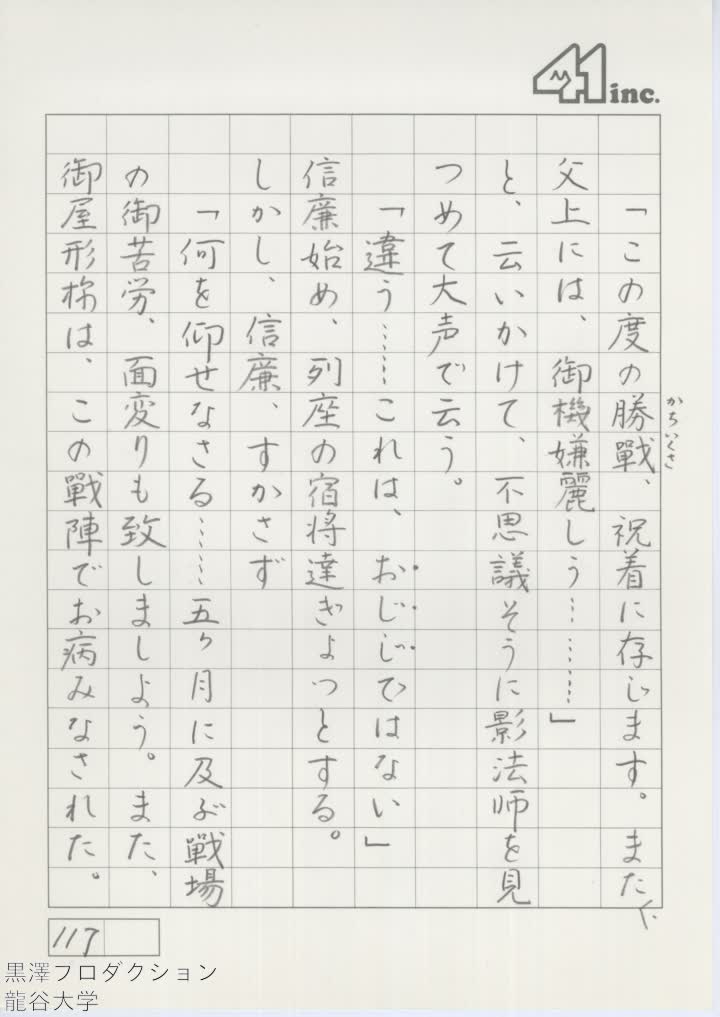 41 inc.
「この度の勝戰、祝着に存じます。また、
かちいくさ
父上には、御機嫌麗しう………」
と、云いかけて、不思議そうに影法師を見
つめて大声で云う。
「違う……これは、おじじではない」
信廉始め、列座の宿将達ぎょっとする。
しかし、信廉、すかさず
「何を仰せなさる……五ヶ月に及ぶ戰場
の御苦労、面変りも致しましよう。また、
御屋形様は、この戰陣でお病みなされた。
117
黒澤プロダクション
龍谷大学